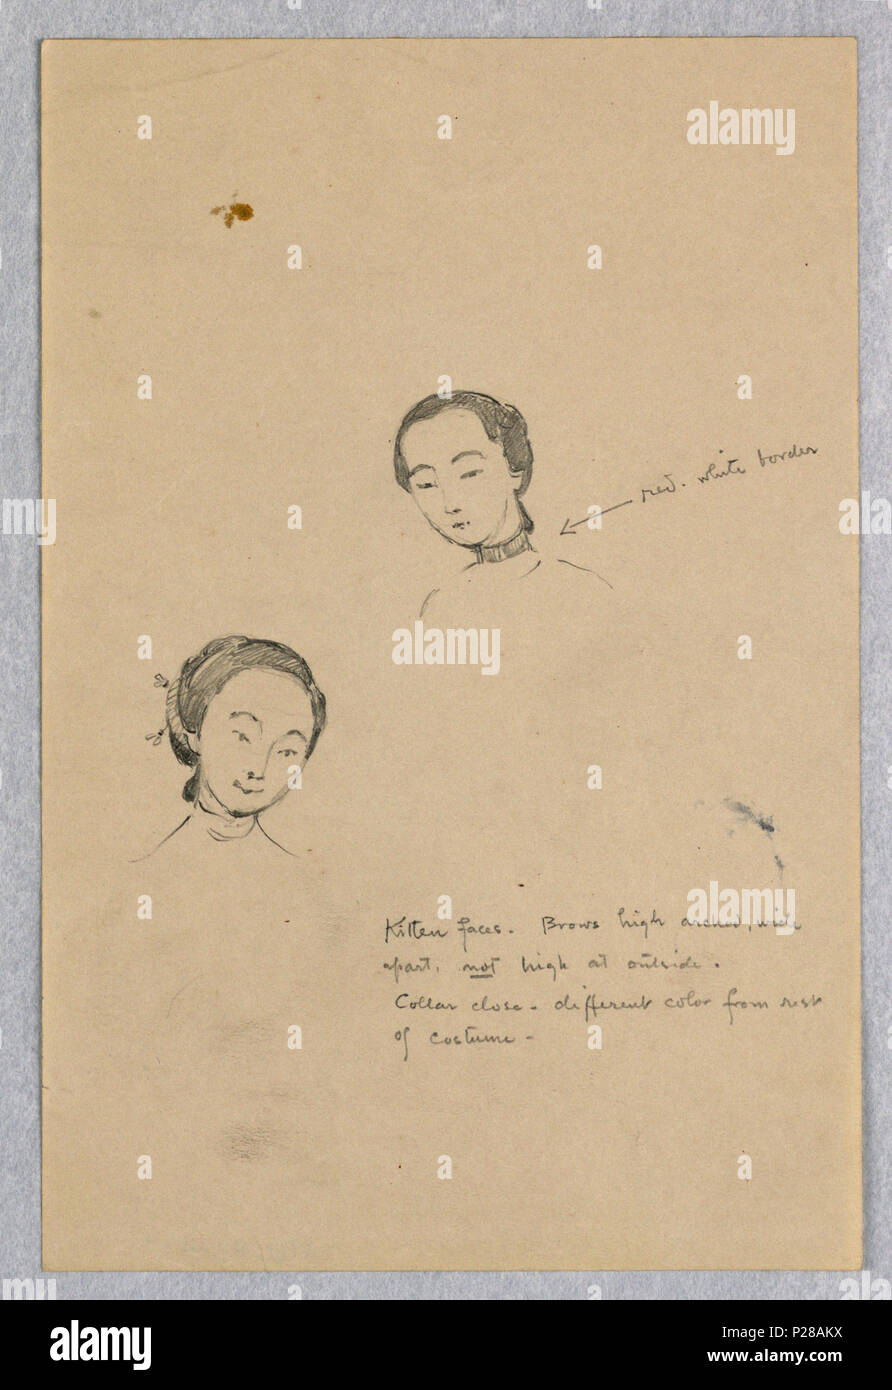 red. white border
Kitten faces. Brows high arched, wide
apart, not high at outside.
Collar close - different color from rest
of costume -
alamy
alamy
Image ID: P28AKX
www.alamy.com